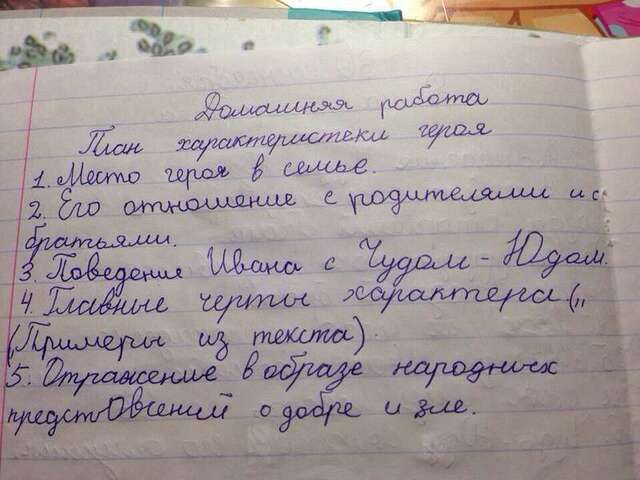 Домашняя работа
План характеристеки героя
1. Место героя в семье.
2. Его отношение с родителями и с
братьями.
3. Поведение Ивана с Чудом-Юдом.
4. Главные черты характера („
(„Примеры из текста)
5. Отражение в образе народных
представлений о добре и зле.